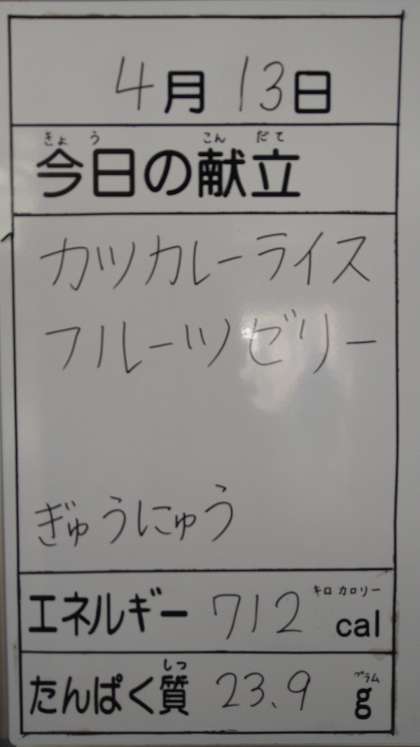 4月13日
きょう こんだて
今日の献立
カツカレーライス
フルーツゼリー
ぎゅうにゅう
キロカロリー
エネルギー 712 cal
しつ グラム
たんぱく質 23.9 g